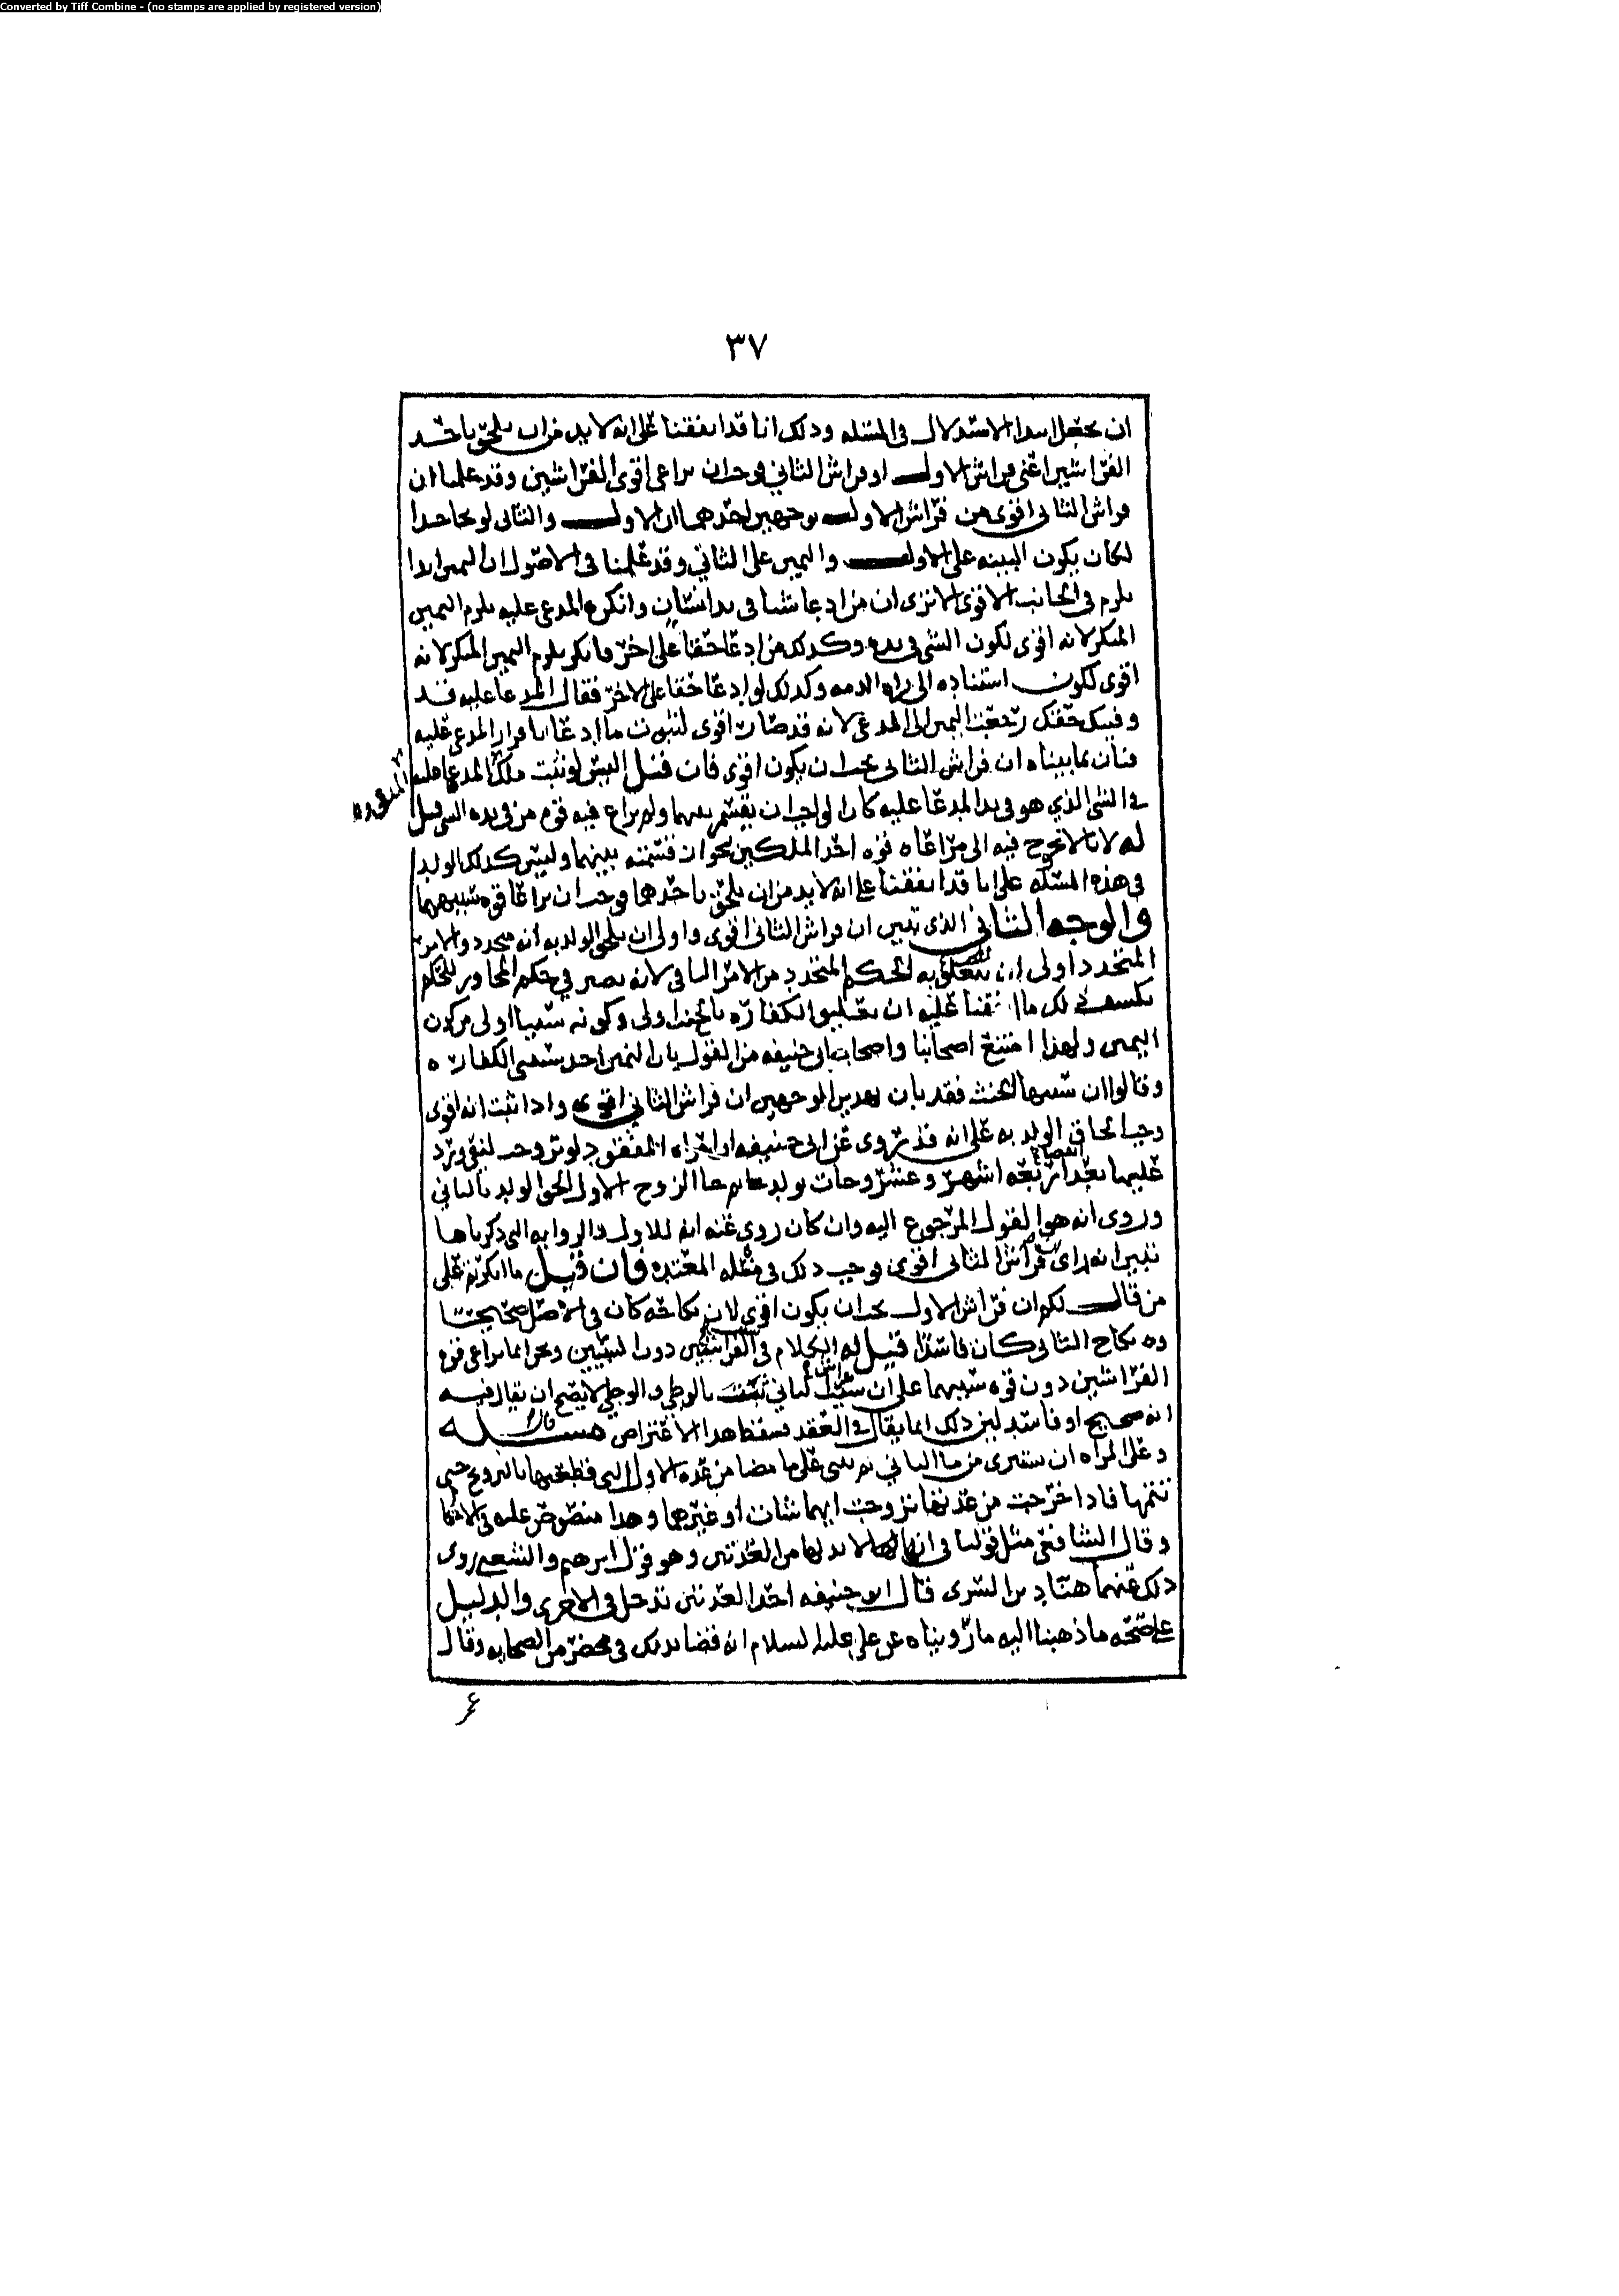 Converted by Tiff Combine - (no stamps are applied by registered version)
٣٧
ان يجعل ابتدا الاستدلال في المسئله وذلك انا قد اتفقنا على انه لا بد من ان يلحق باحد
الفراشين اعني فراش الاول او فراش الثاني فوجب ان يراعى اقوى الفراشين وقد علمنا ان
فراش الثاني اقوى من فراش الاول بوجهين احدهما ان الاول والثاني لو تجاحدا
لكان يكون البينه على الاول واليمين على الثاني وقد علمنا في الاصول ان اليمين ابدا
يلزم في الجانب الاقوى الا ترى ان من ادعا شيا في يد انسان وانكره المدعى عليه يلزم اليمين
المنكر لانه اقوى لكون الشي في يده وكذلك من ادعا حقا على اخر فانكر يلزم اليمين المنكر لانه
اقوى لكون استناده الى براه الذمه وكذلك لو ادعا حقا على الاخر فقال المدعا عليه قد
وفيتك حقك رجعت اليمين الى المدعي لانه قد صار اقوى لثبوت ما ادعا باقرار المدعى عليه
فبان بما بيناه ان فراش الثاني يجب ان يكون اقوى فان قيل اليس لو ثبت ملك المدعا عليه
في الشي الذي هو في يد المدعا عليه كان الواجب ان يقسم بينهما ولم يراع فيه قوه من في يده الشي قيل
له لانا لا نحوج فيه الى مراعاه قوه احد الملكين لجواز قسمته بينهما وليس كذلك الولد
في هذه المسئله على انا قد اتفقنا على انه لا بد من ان يلحق باحدهما فوجب ان يراعا قوه سببيهما
والوجه الثاني الذي يبين ان فراش الثاني اقوى واولى ان يلحق الولد به انه متجدد والامر
المتجدد اولى ان يتعلق به الحكم المتجدد من الامر الباقي لانه يصير في حكم المجاور للحكم
يكشف ذلك ما اتفقنا عليه ان تعليق الكفاره بالحنث اولى وكونه سببا اولى من كون
اليمين ولهذا امتنع اصحابنا واصحاب ابي حنيفه من القول بان اليمين احد سببي الكفاره
وقالوا ان سببها الحنث فقد بان بهذين الوجهين ان فراش الثاني اقوى واذا ثبت انه اقوى
وجب الحاق الولد به على انه قد روى عن ابي حنيفه ان امراه المفقود لو تزوجت لنعي ورد
عليها بعد انقضا اربعه اشهر وعشر وجات بولد ثم جا الزوج الاول الحق الولد بالثاني
وروى انه هو القول المرجوع اليه وان كان روي عنه انه للاول فالروايه التي ذكرناها
تبين انه راى فراش الثاني اقوى فوجب ذلك في مسئله المعتده فان قيل ما انكرتم على
من قال لكم ان فراش الاول يجب ان يكون اقوى لان نكاحه كان في الاصل صحيحا
ونكاح الثاني كان فاسدا قيل له الكلام في الفراشين دون السببين ونحن انما نراعي قوه
الفراشين دون قوه سببهما على ان فراش الثاني ثبت بالوطي والوطي لا يصح ان يقال فيه
انه صحيح او فاسد لان ذلك انما يقال في العقد فسقط هذا الاعتراض مسئله قال
وعلى المراه ان تستبري من ما الثاني ثم تبني على ما مضا من عده الاول التي قطعتها بالتزويج حتى
تتمها فاذا خرجت من عدتها تزوجت ايهما شات او غيرهما وهذا منصوص عليه في الاحكام
وقال الشافعي مثل قولنا في انه لا بد لها من العدتين وهو قول ابرهيم والشعبي روى
ذلك عنهما هناد بن السري قال ابو حنيفه احد العدتين تدخل في الاخرى والدليل
على صحه ما ذهبنا اليه ما رويناه عن علي عليه السلام انه قضا بذلك في محضر من الصحابه وقال